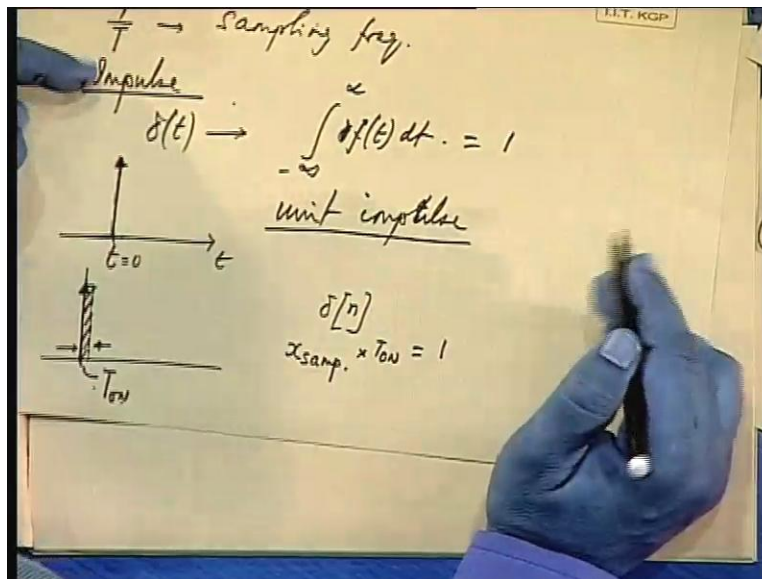 I.I.T. KGP
1/T → Sampling freq.
Impulse
δ(t) → ∫_{-∞}^{∞} δf(t) dt. = 1
unit impulse
t=0
t
δ[n]
x_samp. × T_ON = 1
T_ON